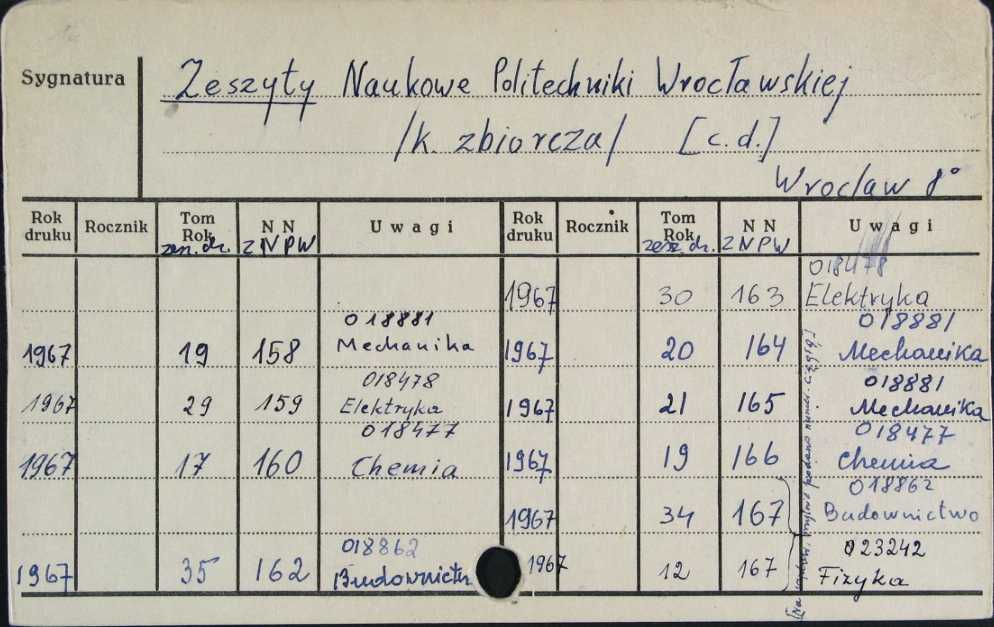 Sygnatura
Zeszyty Naukowe Politechniki Wrocławskiej
/k. zbiorcza/ [c.d.]
Wrocław 8°
Rok druku Rocznik Tom Rok zesz. dz. NN ZNPW Uwagi Rok druku Rocznik Tom Rok zesz. dz. NN ZNPW Uwagi
018478
1967 30 163 Elektryka
018881 018881
1967 19 158 Mechanika 1967 20 164 Mechanika
018478 018881
1967 29 159 Elektryka 1967 21 165 Mechanika
018477 018477
1967 17 160 Chemia 1967 19 166 Chemia
018862
1967 34 167 Budownictwo
018862 023242
1967 35 162 Budownictw 1967 12 167 Fizyka
mylnie podano numer